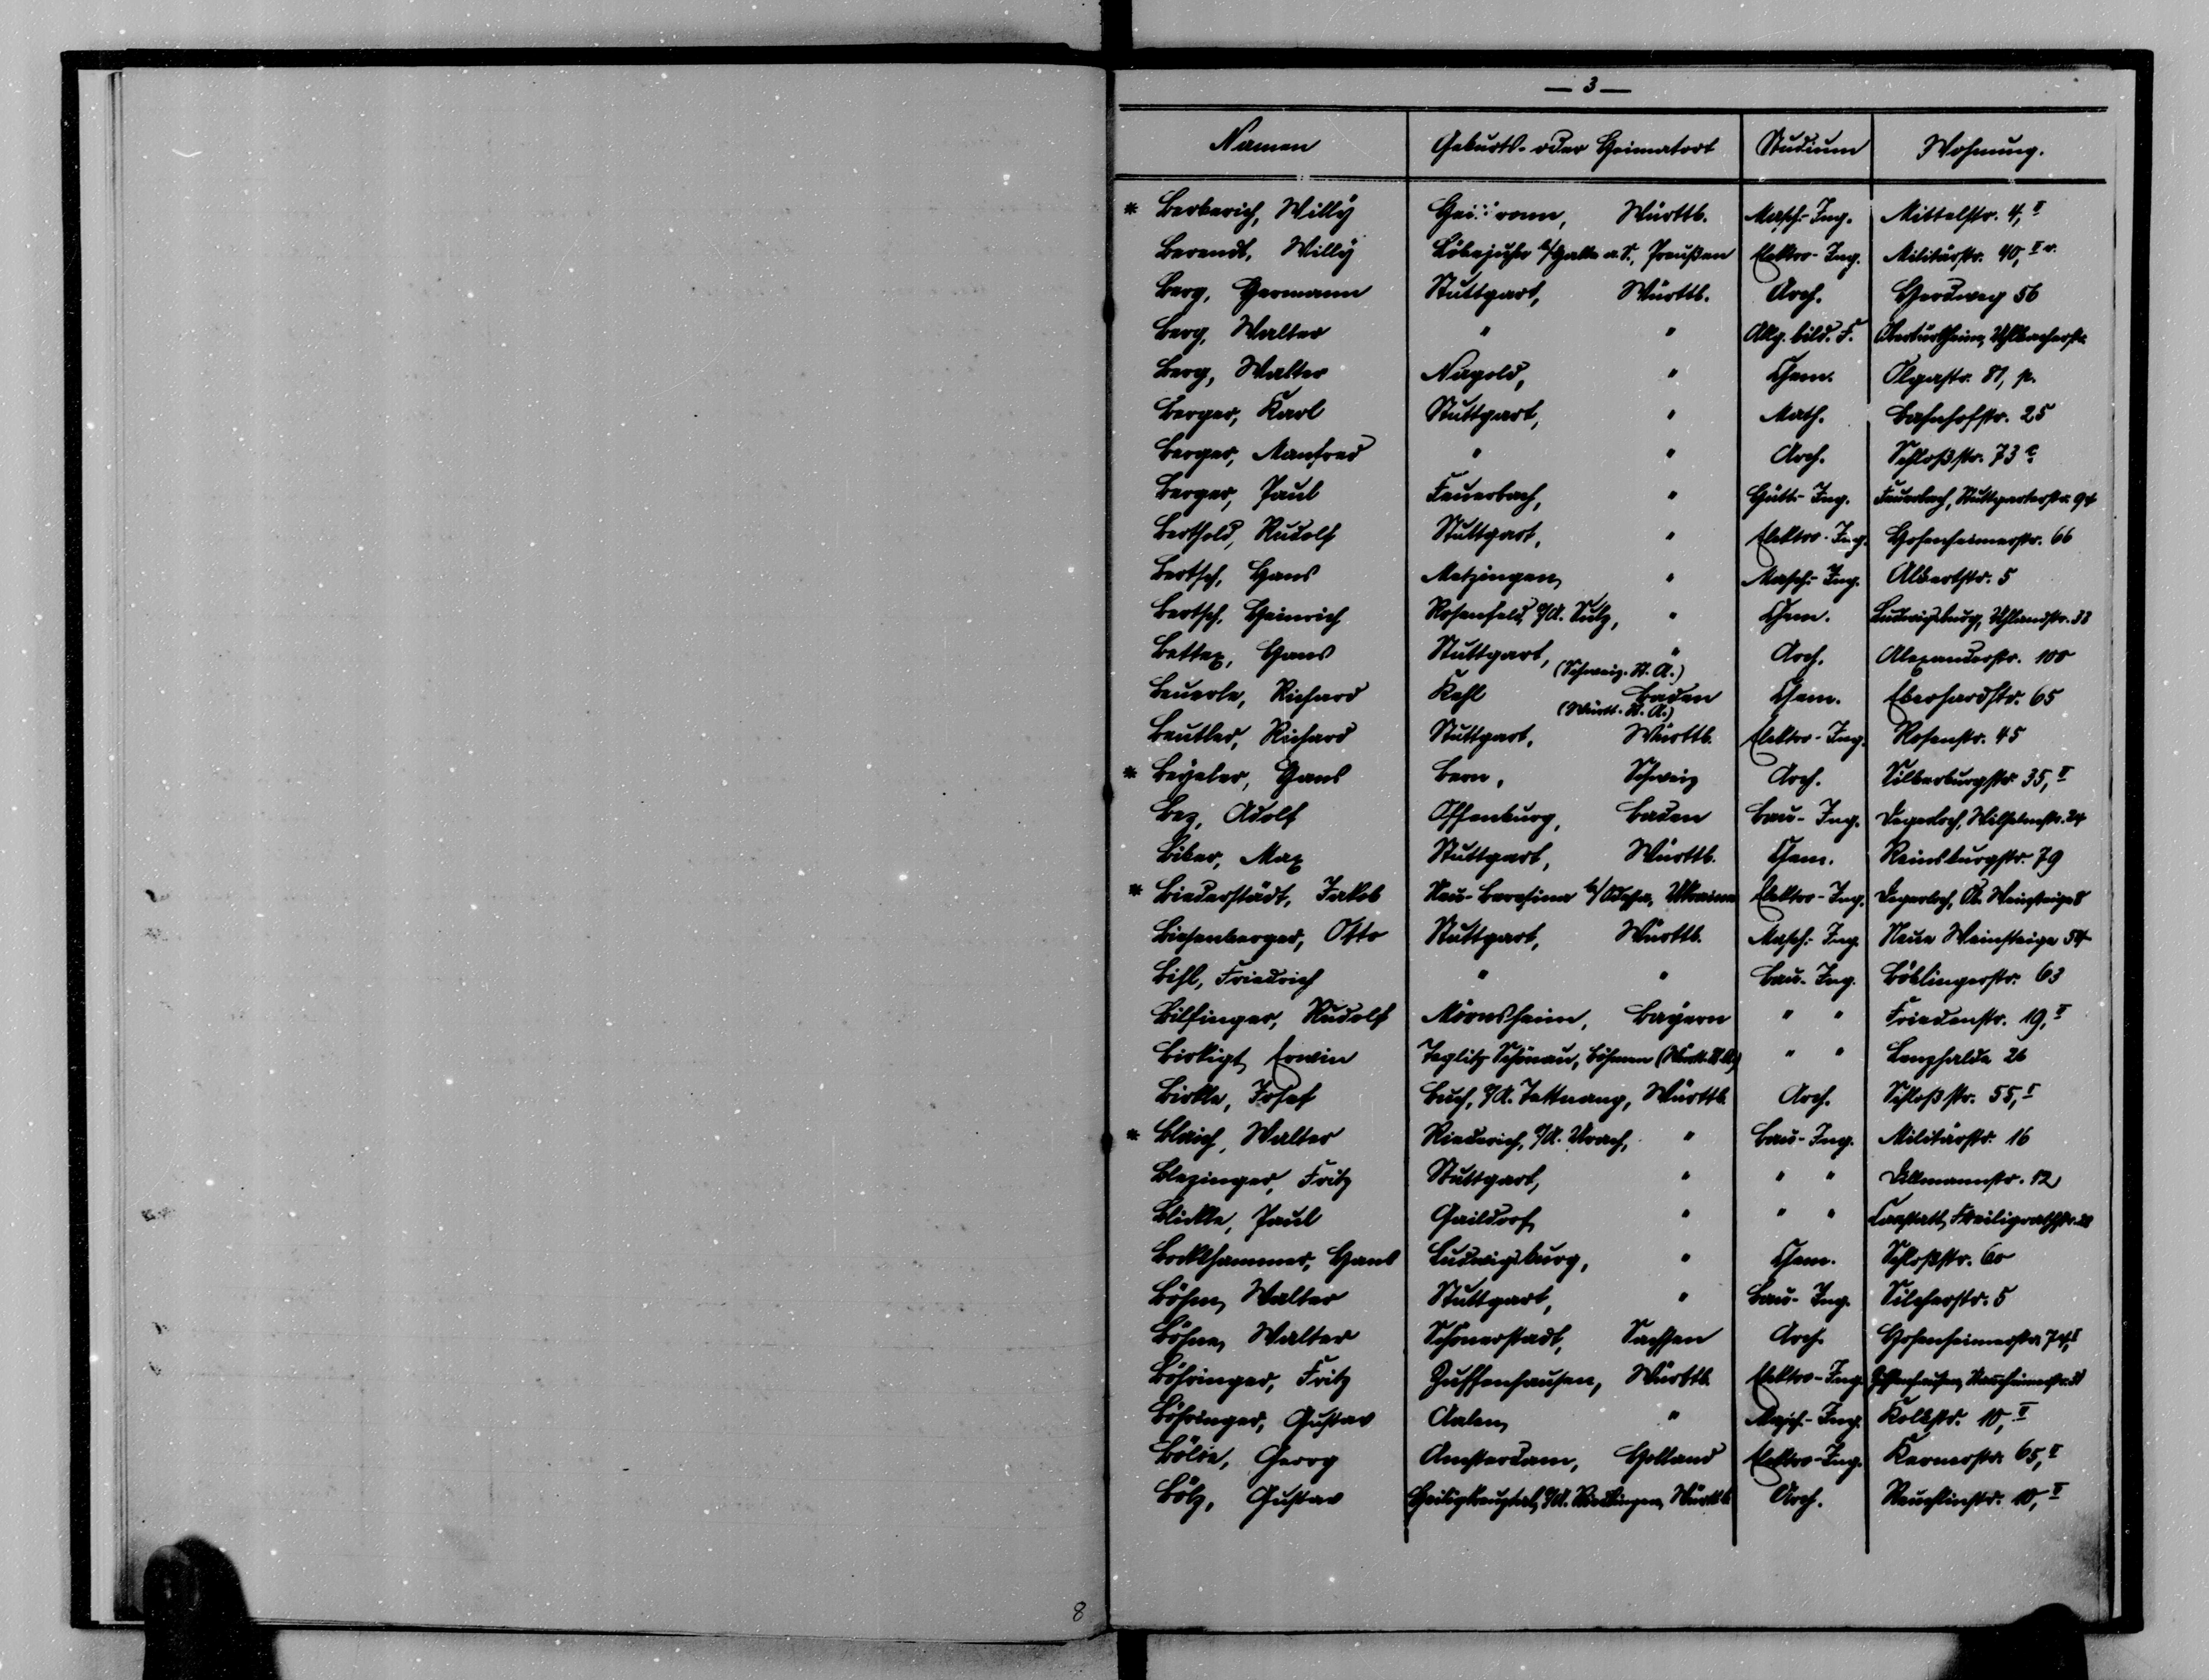 — 3 —
Namen Geburts- oder Heimatort Studium Wohnung.
* Berberich, Willy Württb. Masch.-Ing. Mittelstr. 4, II
Berendt, Willy Löbejuhn b/Halle a.S., Preußen Elektro-Ing. Militärstr. 40, II r.
Berg, Hermann Stuttgart, Württb. Arch. Herdweg 56
Berg, Walter " " Allg. bild. F. Obertürkheim, Uhlbacherstr.
Berg, Walter Nagold, " Chem. Olgastr. 81, p.
Berger, Karl Stuttgart, " Math. Bahnhofstr. 25
Berger, Manfred " " Arch. Schloßstr. 73 c
Berger, Paul Feuerbach, " Hütt-Ing. Feuerbach, Stuttgarterstr. 94
Berthold, Rudolf Stuttgart, " Elektro-Ing. Hohenheimerstr. 66
Bertsch, Hans Metzingen, " Masch.-Ing. Albertstr. 5
Bertsch, Heinrich Rosenfeld, O/A. Sulz, " Chem. Ludwigsburg, Uhlandstr. 33
Bettex, Hans Stuttgart, " (Schweiz. St. A.) Arch. Alexanderstr. 100
Beuerle, Richard Kehl Baden (Württ. St. A.) Chem. Eberhardstr. 65
Beutler, Richard Stuttgart, Württb. Elektro-Ing. Rosenstr. 45
* Beyeler, Hans Bern, Schweiz Arch. Silberburgstr. 35, II
Bez, Adolf Offenburg, Baden Bau-Ing. Degerloch, Wilhelmstr. 24
Biker, Max Stuttgart, Württb. Chem. Reinsburgstr. 79
* Biederstädt, Jakob Neu-Beresina b/Odessa, Ukraine Elektro-Ing. Degerloch, Ob. Weinsteige 8
Biesenberger, Otto Stuttgart, Württb. Masch.-Ing. Neue Weinsteige 54
Bihl, Friedrich " " Bau-Ing. Böblingerstr. 63
Bilfinger, Rudolf Mörnsheim, Bayern " " Friedenstr. 19, II
Birkigt, Erwin Teplitz Schönau, Böhmen (Württ. St. A.) " " Lenzhalde 26
Birkle, Josef Buch, O/A. Tettnang, Württb. Arch. Schloßstr. 55, I
* Blaich, Walter Riederich, O/A. Urach, " Bau-Ing. Militärstr. 16
Blezinger, Fritz Stuttgart, " " " Dillmannstr. 12
Blickle, Paul Gaildorf, " " " Cannstatt, Freiligrathstr.
Bockshammer, Hans Ludwigsburg, " Chem. Schloßstr. 60
Böhm, Walter Stuttgart, " Bau-Ing. Silcherstr. 5
Böhne, Walter Schönerstadt, Sachsen Arch. Hohenheimerstr. 74, I
Böhringer, Fritz Zuffenhausen, Württb. Elektro-Ing. Zuffenhausen,
Böhringer, Gustav Aalen, " Masch.-Ing. Kolbstr. 10, II
Bölde, Georg Amsterdam, Holland Elektro-Ing. Kernerstr. 65, II
Bölz, Gustav Heiligkreuztal, O/A. Riedlingen, Württb. Arch. Reuchlinstr. 10, II
8